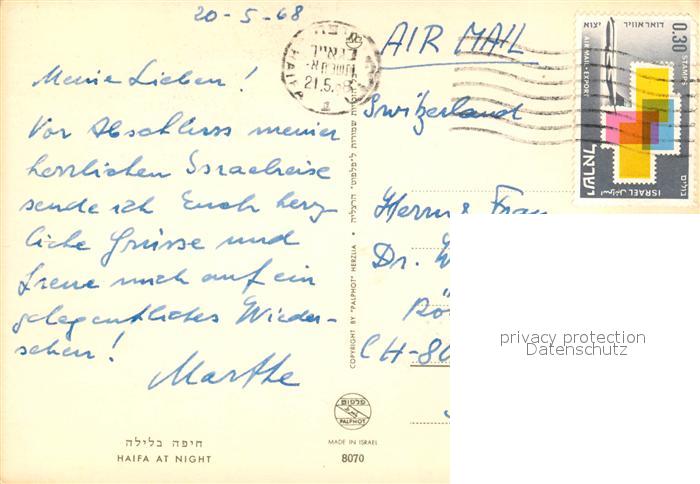 20-5-68
Meine Lieben!
Vor Abschluss meiner
herrlichen Israelreise
sende ich Euch herz-
liche Grüsse und
freue mich auf ein
gelegentliches Wieder-
sehen!
Marthe
חיפה בלילה
HAIFA AT NIGHT
COPYRIGHT BY "PALPHOT" HERZLIA • כל הזכויות שמורות ל"פלפוט" הרצליה
פלפוט
PALPHOT
MADE IN ISRAEL
8070
HAIFA
21.5.68
AIR MAIL
Switzerland
Herrn & Frau
Dr.
CH-80
דואר אוויר יצוא
0.30
STAMPS
AIR MAIL EXPORT
בולים
ישראל
ISRAEL إسرائيل
privacy protection
Datenschutz